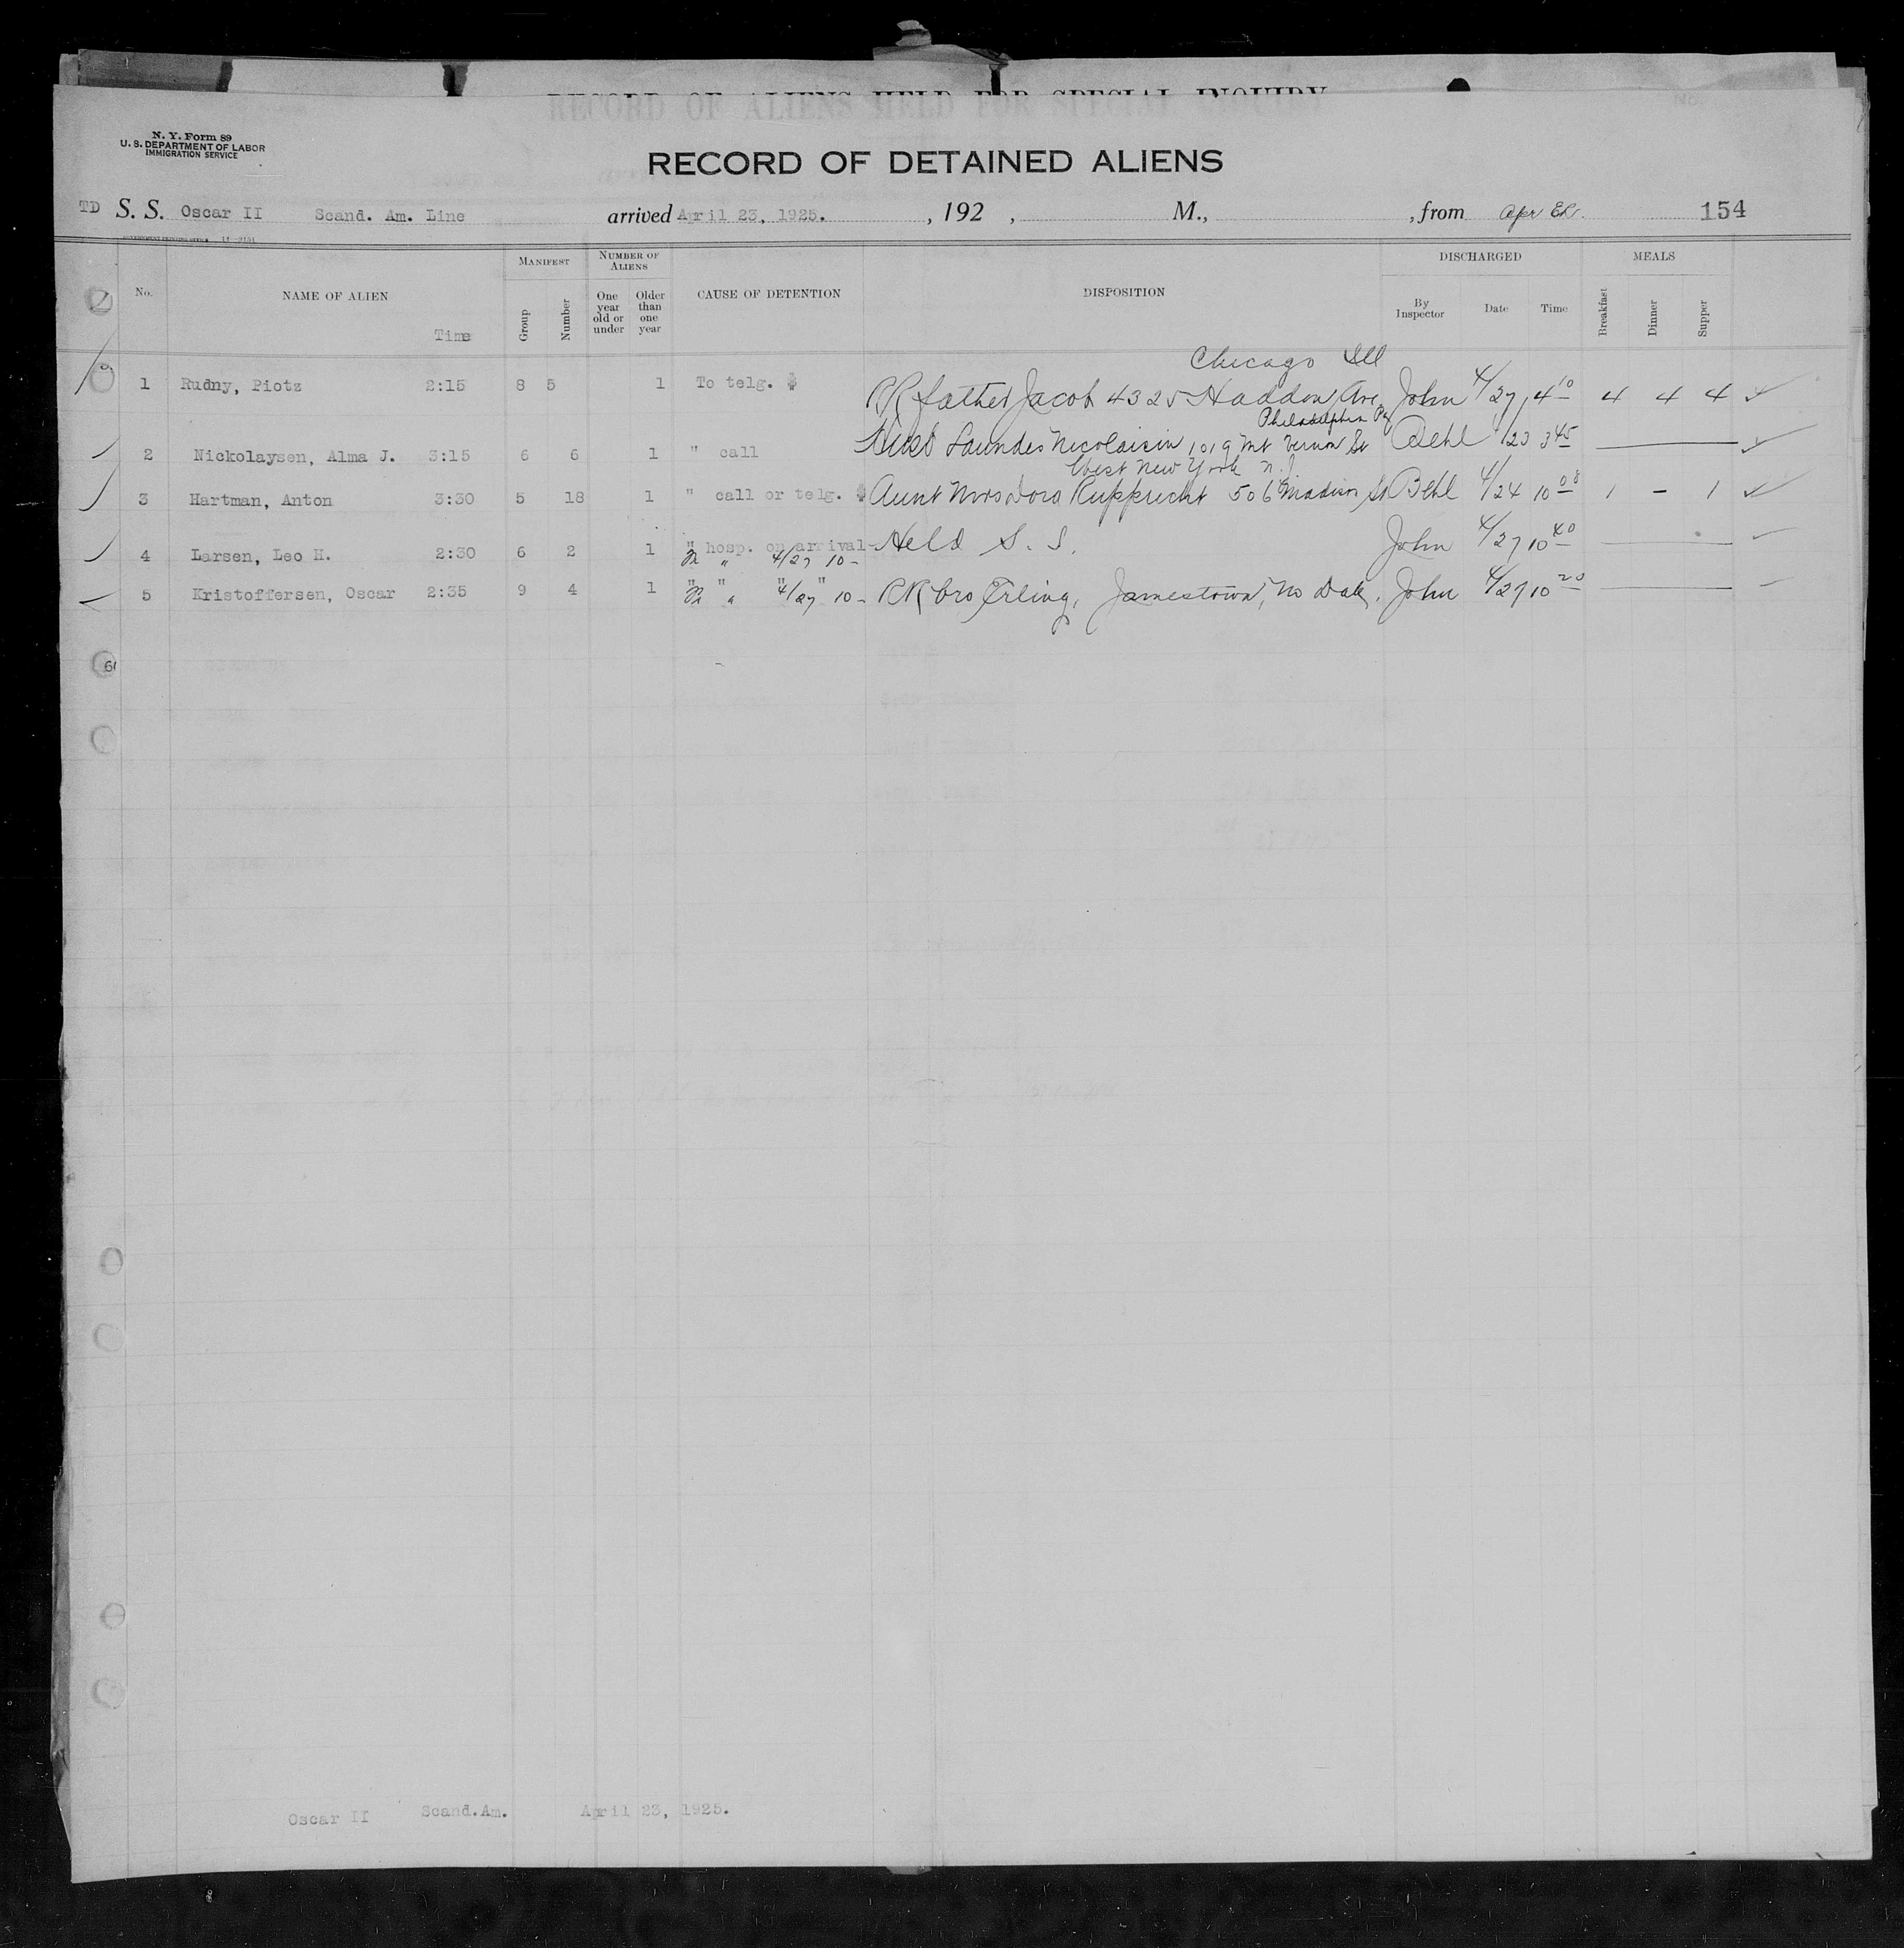 RECORD OF ALIENS HELD FOR SPECIAL INQUIRY
N. Y. Form 89
U. S. DEPARTMENT OF LABOR
IMMIGRATION SERVICE
RECORD OF DETAINED ALIENS
TD S. S. Oscar II Scand. Am. Line arrived April 23, 1925. , 192 , M., , from 154
No. NAME OF ALIEN Time MANIFEST Group Number NUMBER OF ALIENS One year old or under Older than one year CAUSE OF DETENTION DISPOSITION DISCHARGED By Inspector Date Time MEALS Breakfast Dinner Supper
Chicago Ill
1 Rudny, Piotz 2:15 8 5 1 To telg. $ RR father Jacob 4325 Haddon Ave John 4/27 4 10 4 4 4
Philadelphia Pa
2 Nickolaysen, Alma J. 3:15 6 6 1 " call 1019 Mt Vernon St 23 3 45
West New York N.J.
3 Hartman, Anton 3:30 5 18 1 " call or telg. $ Aunt Mrs Dora Rupprecht 506 Madison St 4/24 10 08 1 - 1
4 Larsen, Leo H. 2:30 6 2 1 " hosp. on arrival- Held S. I. John 4/27 10 40
" 4/27 10-
5 Kristoffersen, Oscar 2:35 9 4 1 " " " " RR bro Erling, Jamestown, No Dak. John 4/27 10 20
" 4/27 10-
6
Oscar II Scand.Am. April 23, 1925.